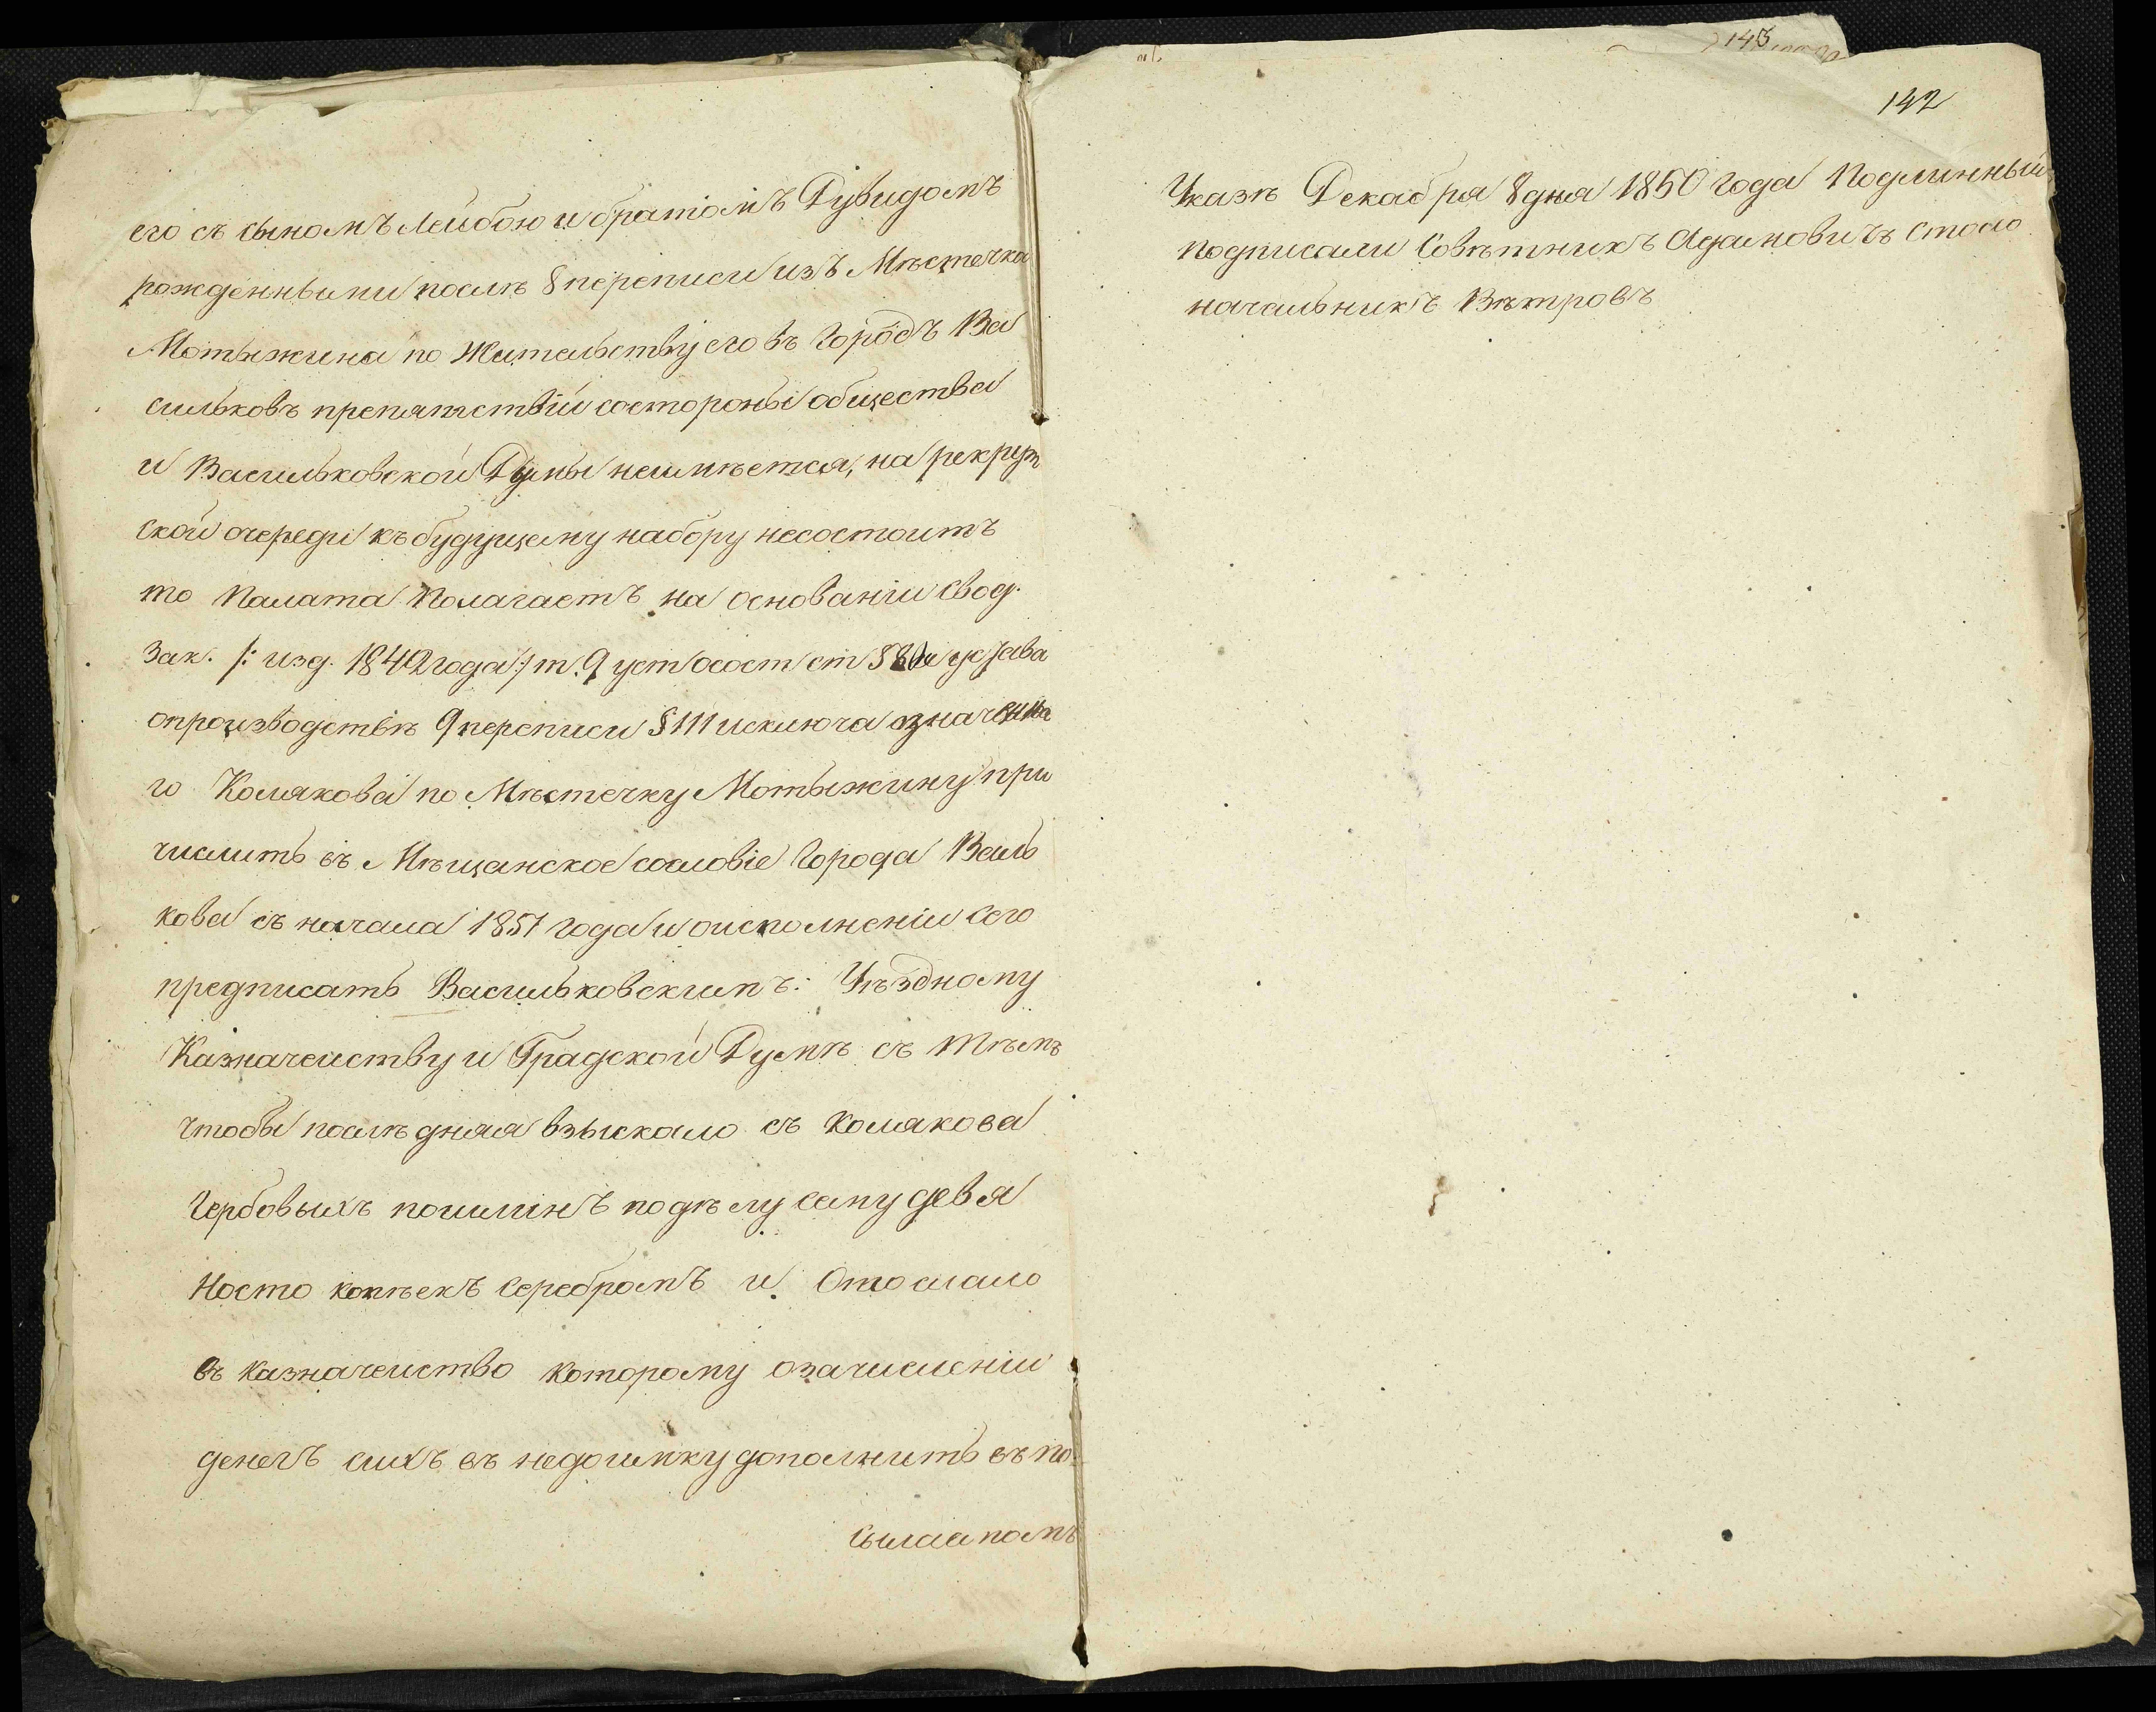 его съ сыномъ Лейбою и братомъ Дувидомъ
рожденными послѣ 8 переписи изъ Мѣстечка
Мотыжина по жительству его въ Городъ Ва
сильковъ препятствій состороны общества
и Васильковской Думы неимѣется, на рекрут
ской очереди къ будущему набору несостоитъ
то Палата Полагаетъ на основаніи Свод.
Зак. /: изд. 1842 года :/ т. 9 уст осост ст
опроизводствѣ 9 переписи § 111 исключа означенна
го Комякова по Мѣстечку Мотыжину при
числить въ Мѣщанское сословіе Города Василь
кова съ начала 1851 года и оисполненіи сего
предписать Васильковскимъ: Уѣздному
Казначейству и Градской Думѣ съ тѣмъ
чтобы послѣдняя взыскало съ Комякова
Гербовыхъ пошлинъ подѣлу сему девя
носто копѣекъ серебромъ и отослало
въ казначейство которому озачисленіи
денегъ сихъ въ недоимку дополнить въ по
сылаемомъ
145
142
Указѣ Декабря 8 дня 1850 года Подлинный
подписали Совѣтникъ Адамовичъ Столо
начальникъ Вѣтровъ